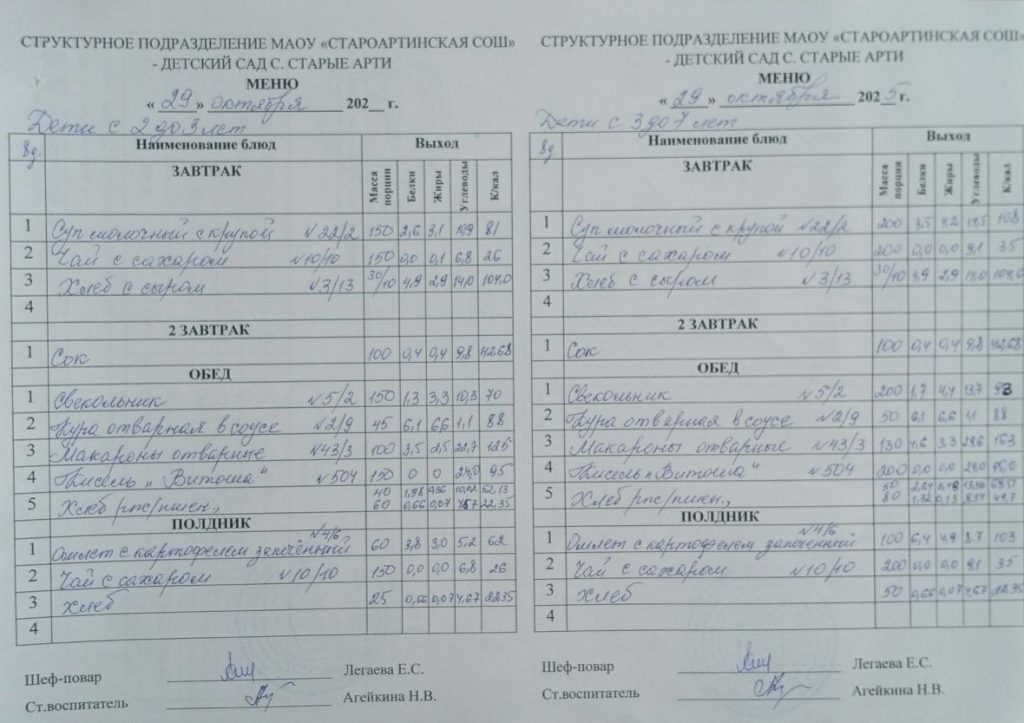 СТРУКТУРНОЕ ПОДРАЗДЕЛЕНИЕ МАОУ «СТАРОАРТИНСКАЯ СОШ»
- ДЕТСКИЙ САД С. СТАРЫЕ АРТИ
МЕНЮ
« 29 » октября 202__ г.
Дети с 2 до 3 лет
Вд. Наименование блюд Выход
ЗАВТРАК Масса порции Белки Жиры Углеводы К/кал
1 Суп молочный с крупой №22/2 150 2,6 3,1 10,9 81
2 Чай с сахаром №10/10 150 0,0 0,1 6,8 26
3 Хлеб с сыром №3/13 30/10 4,9 2,9 14,0 104,0
4
2 ЗАВТРАК
1 Сок 100 0,4 0,4 9,8 42,68
ОБЕД
1 Свекольник №5/2 150 1,3 3,3 10,3 70
2 Кура отварная в соусе №2/9 45 6,1 6,6 1,1 88
3 Макароны отварные №43/3 100 3,5 2,5 22,7 125
4 Кисель "Витоша" №504 150 0 0 24,0 95
5 Хлеб рж/пшен., 40 1,98 0,36 52,13
60 0,66 0,07 4,67 22,35
ПОЛДНИК
1 Омлет с картофелем запечённый №4/6 60 3,8 3,0 5,2 62
2 Чай с сахаром №10/10 150 0,0 0,0 6,8 26
3 Хлеб 25 0,66 0,07 4,67 22,35
4
Шеф-повар Легаева Е.С.
Ст.воспитатель Агейкина Н.В.
СТРУКТУРНОЕ ПОДРАЗДЕЛЕНИЕ МАОУ «СТАРОАРТИНСКАЯ СОШ»
- ДЕТСКИЙ САД С. СТАРЫЕ АРТИ
МЕНЮ
« 29 » октября 2025 г.
Дети с 3 до 7 лет
Вд Наименование блюд Выход
ЗАВТРАК Масса порции Белки Жиры Углеводы К/кал
1 Суп молочный с крупой №22/2 200 3,5 4,2 14,5 108
2 Чай с сахаром №10/10 200 0,0 0,0 9,1 35
3 Хлеб с сыром №3/13 30/10 4,9 2,9 14,0 104,0
4
2 ЗАВТРАК
1 Сок 100 0,4 0,4 9,8 42,68
ОБЕД
1 Свекольник №5/2 200 1,7 4,4 13,7 93
2 Кура отварная в соусе №2/9 50 6,1 6,6 1,1 88
3 Макароны отварные №43/3 130 4,6 3,3 29,6 163
4 Кисель "Витоша" №504 200 0,0 0,0 24,0 95,0
5 Хлеб рж/пшен., 50 2,64
80 1,32 0,13 9,34 44,7
ПОЛДНИК
1 Омлет с картофелем запечённый №4/6 100 6,4 4,9 8,7 103
2 Чай с сахаром №10/10 200 0,0 0,0 9,1 35
3 Хлеб 50 0,66 0,07 4,67 22,35
4
Шеф-повар Легаева Е.С.
Ст.воспитатель Агейкина Н.В.